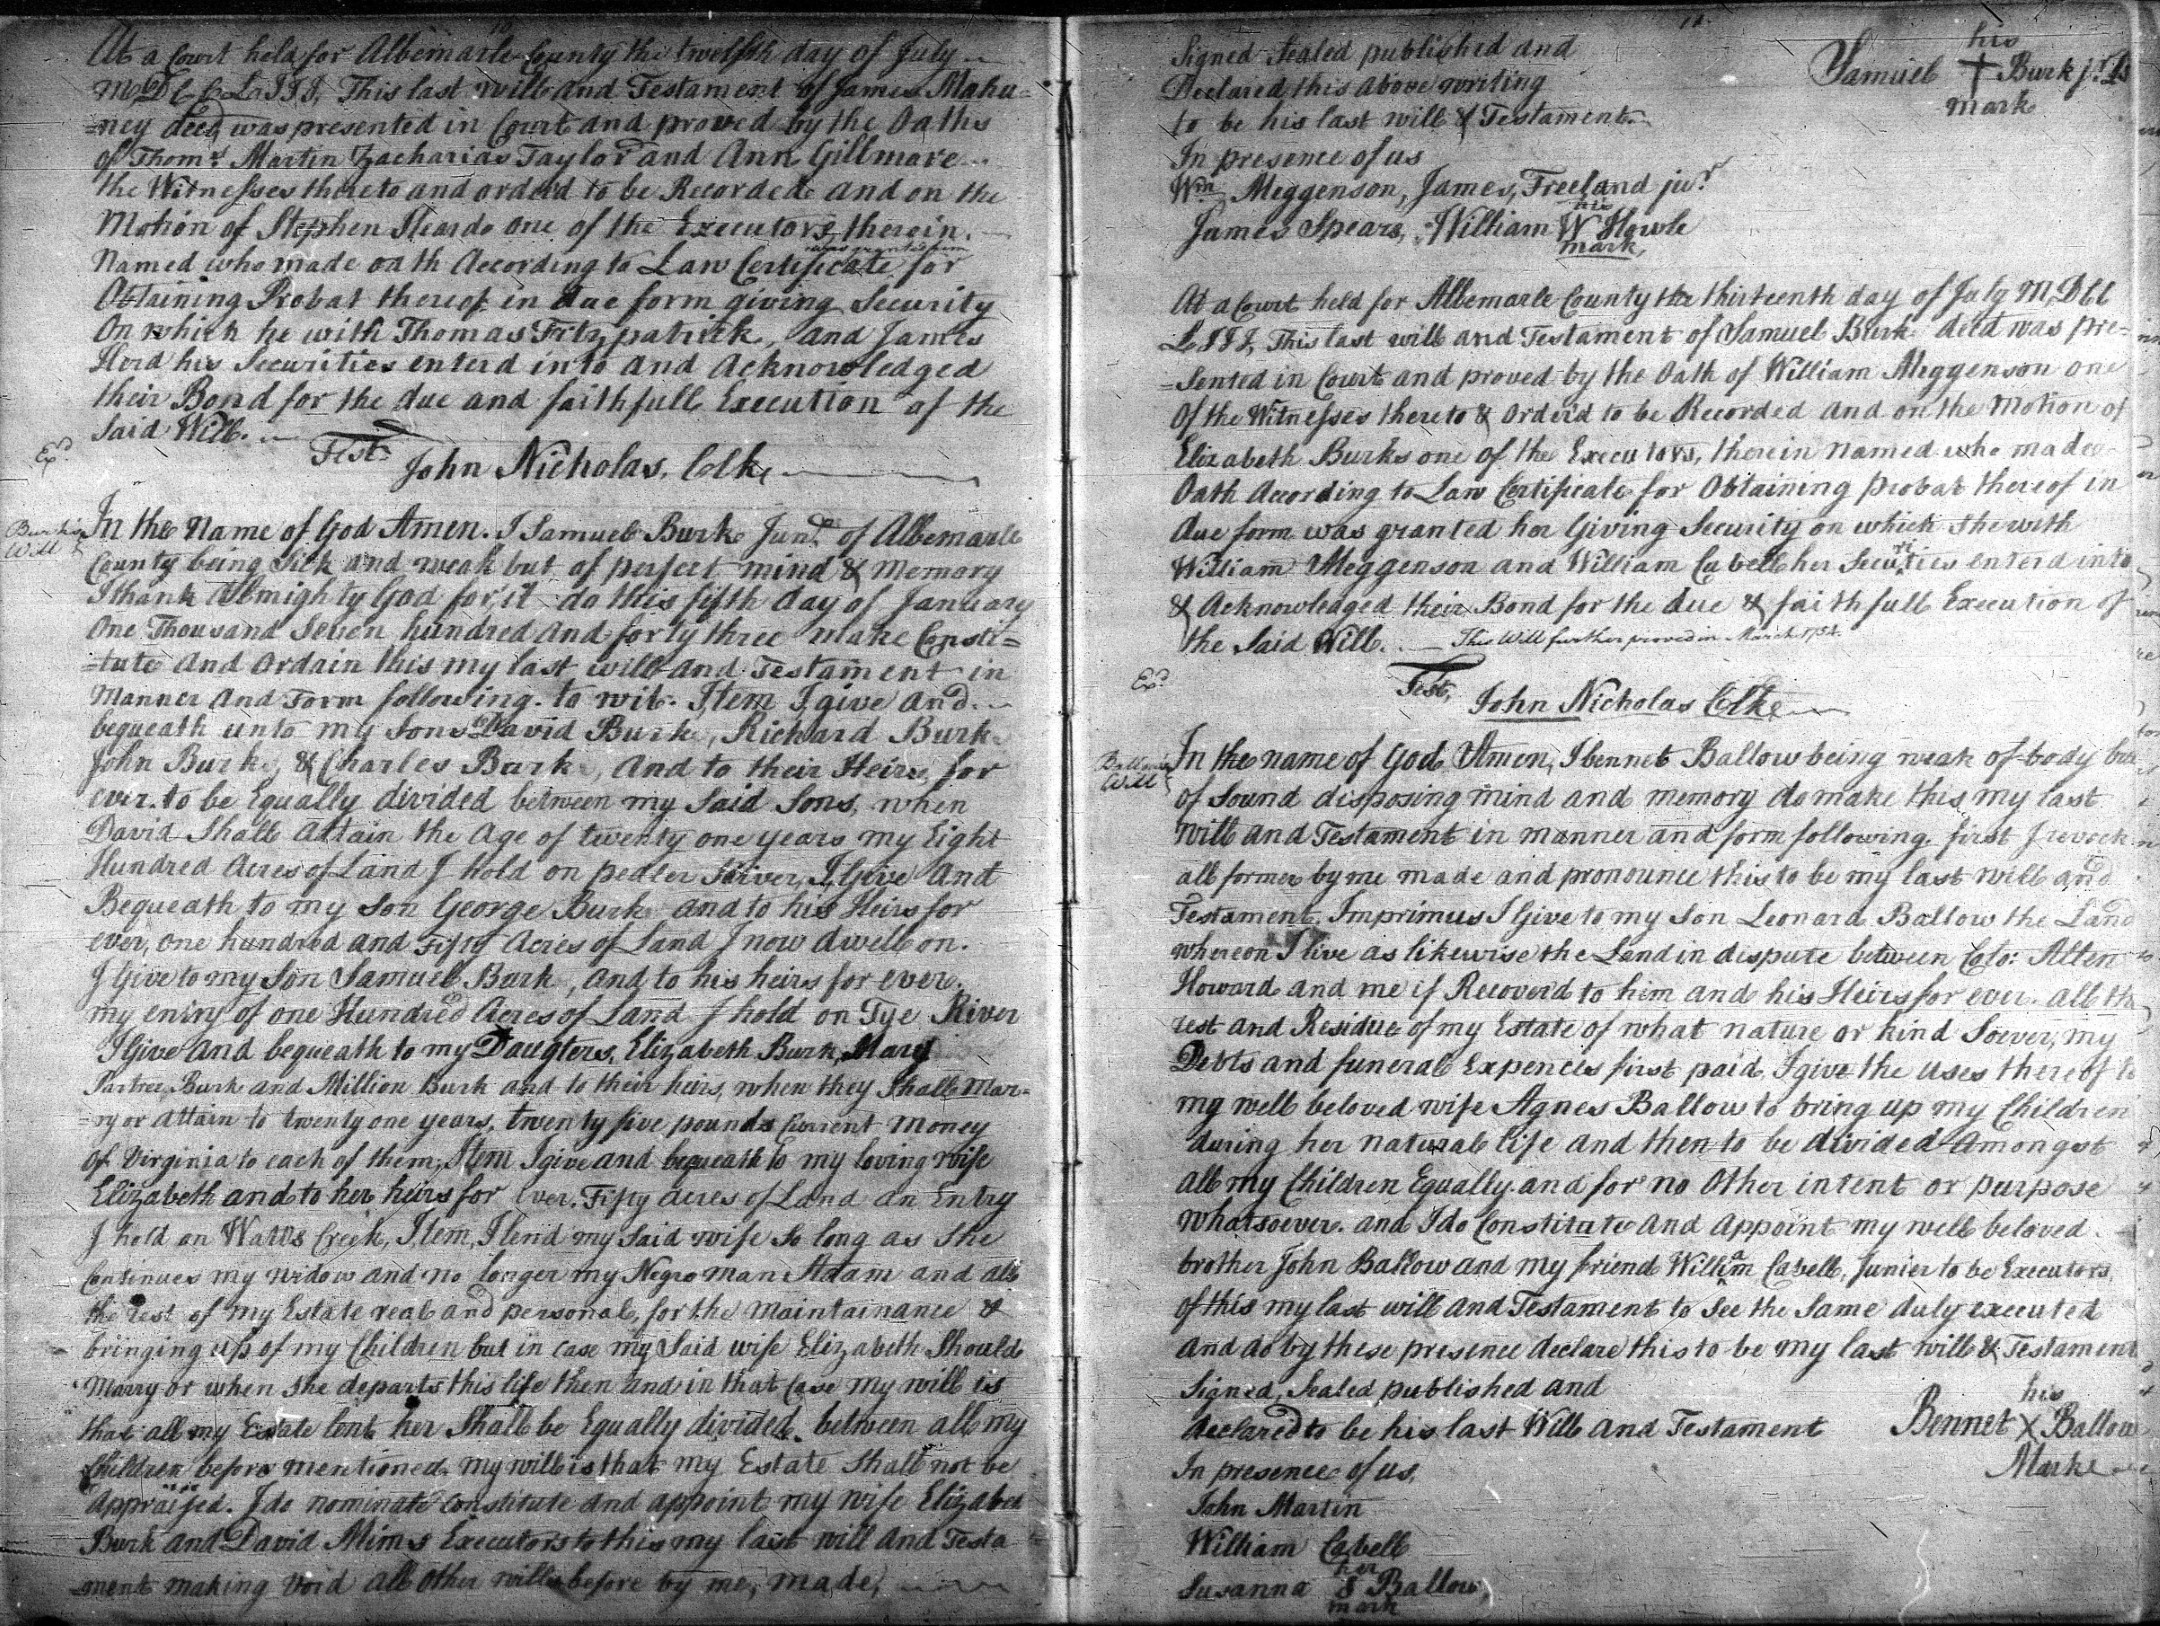 10
At a Court held for Albemarle County the twelfth day of July
MDCCLIII, This last will and Testament of James Mahu=
=ney decd was presented in Court and proved by the Oaths
of Thoms. Martin Zacharias Taylor and Ann Gillmore
the Witnesses thereto and orderd to be Recorded and on the
Motion of Stephen Heards one of the Executors therein
was granted him
Named who made oath According to Law Certificate for
Obtaining Probat thereof in due form giving Security
On which he with Thomas Fitzpatrick, and James
Herd his Securities enterd into and Acknowledged
their Bond for the due and faithfull Execution of the
Said Will.
Test.
John Nicholas, Clk
Exd.
Burk's
Will
In the Name of God Amen. I Samuel Burk Junr. of Albemarle
County being Sick and weak but of perfect mind & Memory
I thank Almighty God for it do this fifth day of January
One Thousand Seven hundred and forty three make Consti=
=tute And Ordain this my last will and Testament in
Manner And Form following. to wit. Item I give and
bequeath unto my Sons David Burk, Richard Burk
John Burk, & Charles Burk, And to their Heirs for
ever. to be Equally divided between my Said Sons, when
David Shall Attain the Age of twenty one years my Eight
Hundred Acres of Land I hold on pedler River, I Give And
Bequeath to my Son George Burk and to his Heirs for
ever, one hundred and Fifty Acres of Land I now dwell on.
I Give to my Son Samuel Burk, and to his heirs for ever.
my entry of one Hundred Acres of Land I hold on Tye River
I Give and bequeath to my Daugters, Elizabeth Burk, Mary
Burk and Million Burk and to their heirs, when they Shall Mar=
=ry or attain to twenty one years, twenty five pounds Current Money
of Virginia to each of them, Item I give and bequeath to my loving wife
Elizabeth and to her heirs for Ever. Fifty acres of Land an Entry
I hold on Watts Creek, Item, I lend my Said wife So long as She
Continues my widow and no longer my Negro man Adam and all
the rest of my Estate real and personal, for the Maintainance &
bringing up of my Children but in case my Said wife Elizabeth Should
Marry or when She departs this life then and in that Case my will is
that all my Estate lent her Shall be Equally divided between all my
Children before mentioned. my will is that my Estate Shall not be
Appraised. I do nominate Constitute and appoint my wife Elizabeth
Burk and David Mims Executors to this my last will and Testa
=ment making void all other wills before by me, made,
11
Signed Sealed published and
Declared this Above writing
to be his last will & Testament.
In presence of us
his
Samuel + Burk jr. Ls
mark
Wm. Meggenson, James, Freeland junr.
his
James Spears, William W Howle
mark,
At a Court held for Albemarle County the thirteenth day of July MDCC
LIII, This last will and Testament of Samuel Burk decd was pre=
=sented in Court and proved by the Oath of William Meggenson one
Of the Witnesses thereto & Orderd to be Recorded And on the Motion of
Elizabeth Burks one of the Executors, therein Named who made
Oath According to Law Certificate for Obtaining probat thereof in
due form was granted her Giving Security on which She with
William Meggenson and William Cabell her Securities enterd into
& Acknowledged their Bond for the due & faithfull Execution of
the Said Will. This Will further proved in March 1754.
Exd.
Test,
John Nicholas Clk
Ballow's
Will
In the name of God Amen, I bennet Ballow being weak of body but
of Sound disposing mind and memory do make this my last
Will and Testament in manner and form following, first I revock
all former by me made and pronounce this to be my last will and
Testament. Imprimus I Give to my Son Leonard Ballow the Land
whereon I live as likewise the Land in dispute between Colo: Allen
Howard and me if Recoverd to him and his Heirs for ever. all the
rest and Residue of my Estate of what nature or kind Soever, my
Debts and funeral Expences first paid, I give the uses thereof to
my well beloved wife Agnes Ballow to bring up my Children
during her natural life and then to be divided Amongst
all my Children Equally. and for no Other intent or purpose
Whatsoever. and I do Constitute And Appoint my well beloved
brother John Ballow and my friend William Cabell, Junier to be Executors,
of this my last will and Testament to See the Same duly executed
and do by these presence declare this to be my last will & Testament
Signed, Sealed published and
declared to be his last Will and Testament
In presence of us,
his
Bennet X Ballow
Mark
John Martin
William Cabell
her
Susanna S Ballow
mark